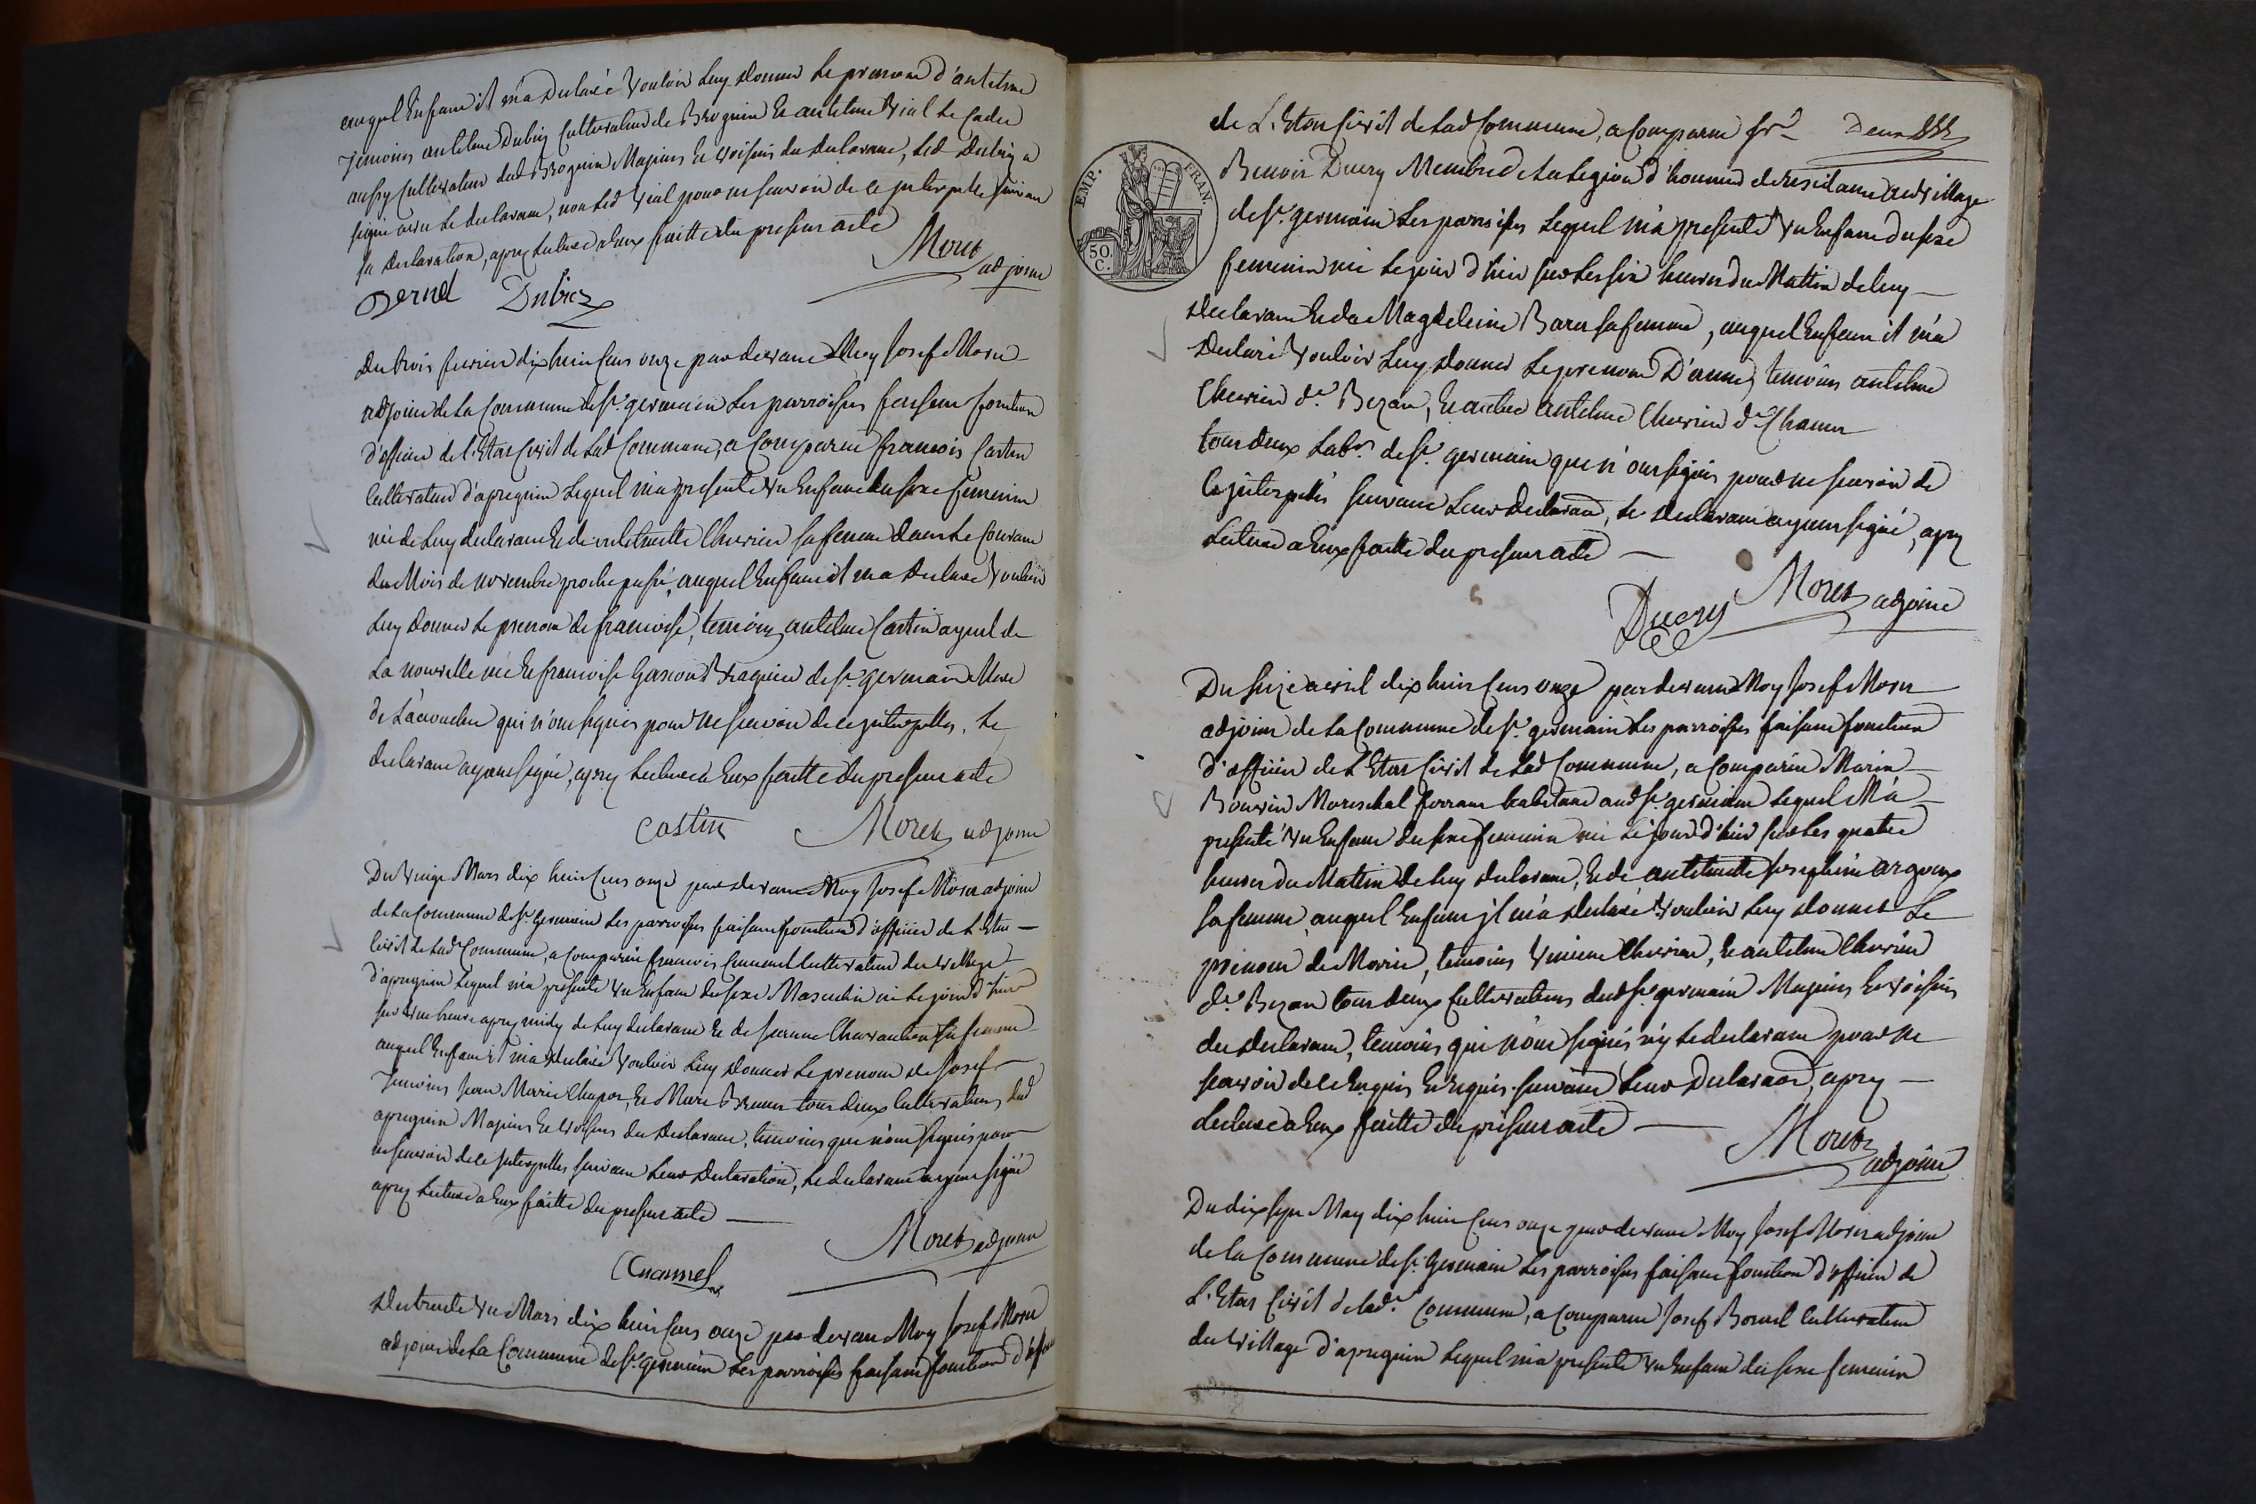 auquel Enfant il m'a Declaré Vouloir Luy donner Le prenom d'antelme
Temoins antelme Dubiez Cultivateur de Brognin Et antelme Vial Le Cadet
aussy Cultivateur dud Brognin Majeurs Et Voisins du Declarant, Led Dubiez a
signé avec Le declarant, non Led Vial pour ne scavoir de ce jnterpellé suivant
sa Declaration, apres Lecture a Eux faitte du present acte
Moret
adjoint
Bernel Dubiez
Du trois fevrier dix huit Cens onze par devant Moy Josef Moret
adjoint de La Commune de St. germain Les parroisses faisant fonction
d'officier de l'Etat Civil de Lad Commune, a Comparu francois Castin
Cultivateur d'apregnin Lequel m'a presenté Vn Enfant du sexe feminin
né de Luy declarant Et de antelmette Chevrier sa femme dans Le Courant
du Mois de novembre proche passé, auquel Enfant il m'a Declaré Vouloir
Luy donner Le prenom de francoise, temoins antelme Castin ayeul de
La nouvelle née Et francoise de St. germain Mere
de L'acouchée qui n'ont signés pour ne scavoir de ce jnterpellés, Le
declarant ayant signé, apres Lecture a Eux faitte du present acte
Castin Moret adjoint
Du Vingt Mars dix huit Cens onze par devant Moy Josef Moret adjoint
de La Commune de St. Germain Les parroisses faisant fonction d'officier de L'Etat
Civil de Lad Commune, a Comparu francois Cultivateur du Village
d'apregnin Lequel m'a presenté Vn Enfant du sexe Masculin né Le jour d'hier
sur Vne heure apres midy de Luy declarant Et de sa femme
auquel Enfant il m'a Declaré Vouloir Luy donner Le prenom de Josef
Temoins Jean Marie Chapot, Et Marc Brunet tous deux Cultivateurs dud
apregnin Majeurs Et Voisins du Declarant, temoins que n'ont signés pour
ne scavoir de ce jnterpellés suivant Leur Declaration, Le declarant ayant signé
apres Lecture a Eux faitte du present acte
Moret adjoint
Du trente Vn Mars dix huit Cens onze par devant Moy Josef Moret
adjoint de La Commune de St. germain Les parroisses faisant fonction d'officier
de L'Etat Civil de Lad Commune, a Comparu Sr. Deux
EMP. FRAN.
50.
C.
Benoit Ducry Membre de La Legion d'honneur de residance aud Village
de St. germain Les parroisses Lequel m'a presenté Vn Enfant du sexe
feminin né Le jour d'hier sur Les six heures du Mattin de Luy
declarant Et de Magdeleine Baret sa femme, auquel Enfant il m'a
Declaré Vouloir Luy donner Le prenom D'anne, temoins antelme
Chevrier dt. Bezan, Et autre antelme Chevrier dt.
tous deux Labrs. de St. germain que n'ont signés pour ne scavoir de
Ce jnterpellés suivant Leur Declaraon, Le declarant ayant signé, apres
Lecture a Eux faitte du present acte
Ducry Moret adjoint
Du seize avril dix huit Cens onze par devant Moy Josef Moret
adjoint de La Commune de St. germain Les parroisses faisant fonction
d'officier de L'Etat Civil de Lad Commune, a Comparu Marin
Bouvin Mareschal ferrant habitant aud St. germain Lequel M'a
presenté Vn Enfant du sexe feminin né Le jour d'hier sur Les quatre
heures du Mattin de Luy declarant, Et de antelmette Josephine argoux
sa femme, auquel Enfant jl m'a declaré Vouloir Luy donner Le
prenom de Marie, temoins Vincent Chevrier, Et antelme Chevrier
dt. Bezan tous deux Cultivateurs dud St. germain Majeurs Et Voisins
du declarant, temoins qui n'ont signés n'y Le declarant pour ne
scavoir de ce Enquis Et requis suivant Leur Declaraon, apres
Lecture a Eux faitte du present acte
Moret
adjoint
Du dix sept May dix huit Cens onze par devant Moy Josef Moret adjoint
de la Commune de St. Germain Les parroisses faisant fonction d'officier de
L'Etat Civil de lad. Commune, a Comparu Josef Cultivateur
du Village d'apregnin Lequel m'a presenté Vn Enfant du sexe feminin